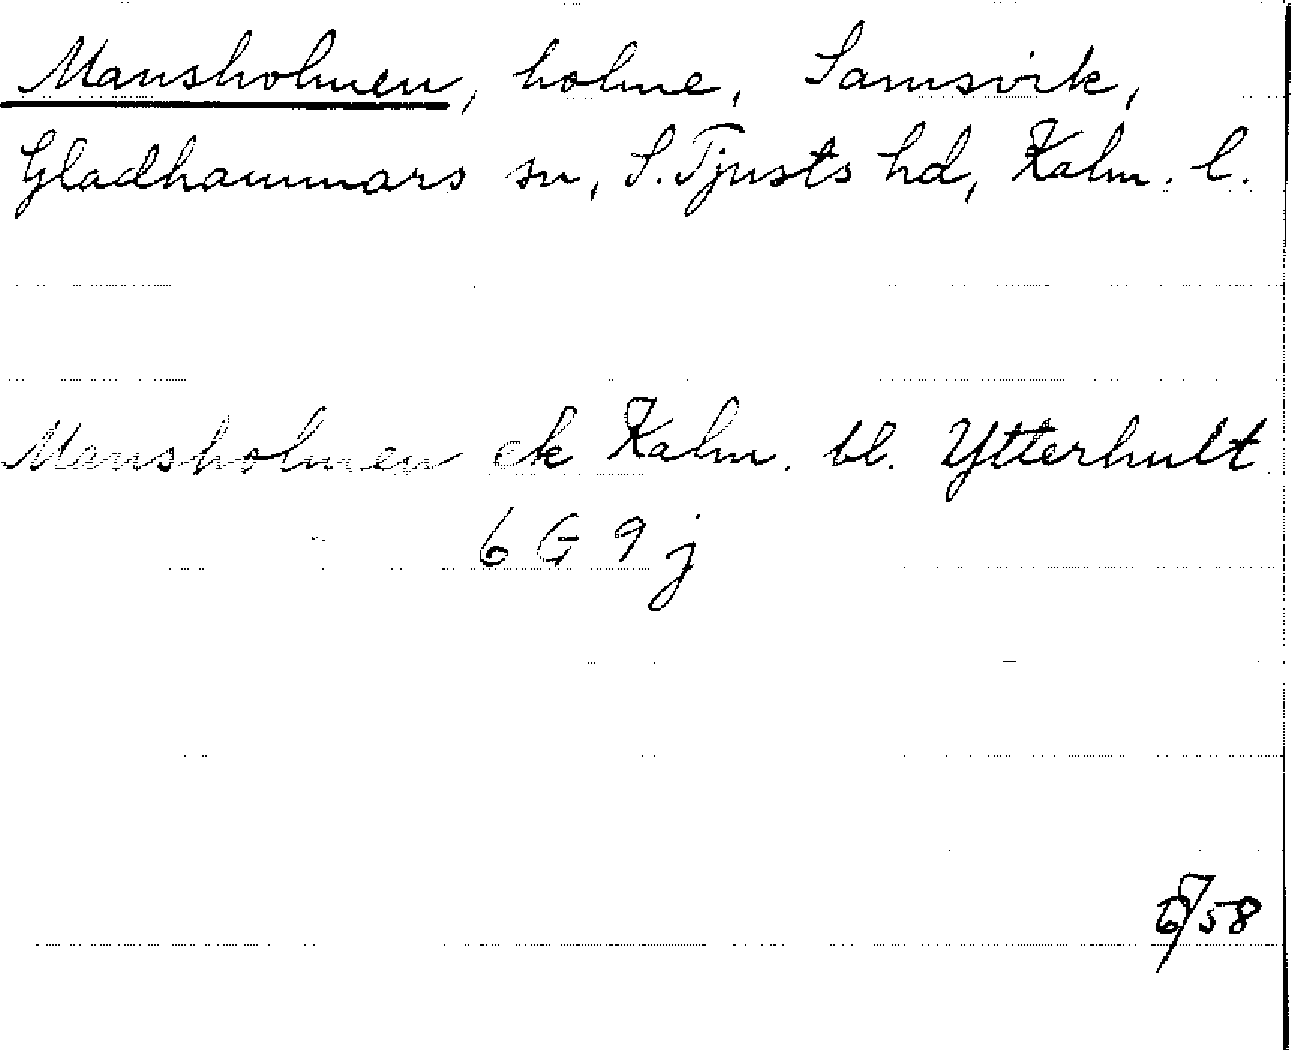 Mansholmen, holme, Samsvik,
Gladhammars sn, S. Tjusts hd, Kalm. l.
Mansholmen ek Kalm. bl. Ytterhult
6 G 9 j
/58